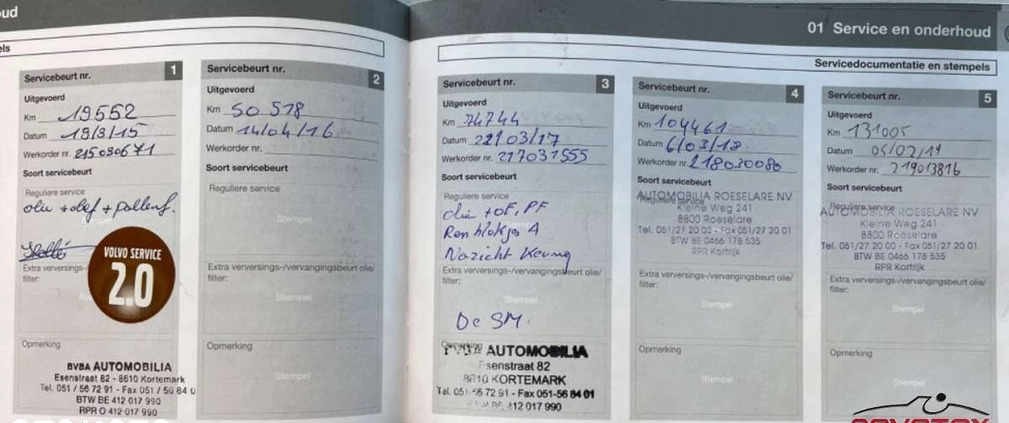 oud
els
01 Service en onderhoud
Servicedocumentatie en stempels
Servicebeurt nr. 1
Uitgevoerd
Km 19552
Datum 19/3/15
Werkorder nr. 215030671
Soort servicebeurt
Reguliere service
olie + olef + pollenf.
VOLVO SERVICE
2.0
Extra verversings-
filter:
Opmerking
BVBA AUTOMOBILIA
Esenstraat 82 - 8610 Kortemark
Tel. 051 / 56 72 91 - Fax 051 / 56 84 0
BTW BE 412 017 990
RPR O 412 017 990
Servicebeurt nr. 2
Uitgevoerd
Km 50 578
Datum 14/04/16
Werkorder nr.
Soort servicebeurt
Reguliere service
Stempel
Extra verversings-/vervangingsbeurt olie/
filter:
Stempel
Opmerking
Stempel
Servicebeurt nr. 3
Uitgevoerd
Km 74744
Datum 22/03/17
Werkorder nr. 217031555
Soort servicebeurt
Reguliere service
olie + OF, PF
Remblokjes A
Nazicht Keuring
Extra verversings-/vervangingsbeurt olie/
filter:
Stempel
De SM.
Opmerking
AUTOMOBILIA
Esenstraat 82
8610 KORTEMARK
Tel. 051-56 72 91 - Fax 051-56 84 01
412 017 990
Servicebeurt nr. 4
Uitgevoerd
Km 104461
Datum 6/03/18
Werkorder nr. 218030080
Soort servicebeurt
Reguliere service
AUTOMOBILIA ROESELARE NV
Kleine Weg 241
8800 Roeselare
Tel. 051/27 20 00 - Fax 051/27 20 01
BTW BE 0466 178 535
RPR Kortrijk
Extra verversings-/vervangingsbeurt olie/
filter:
Stempel
Opmerking
Stempel
Servicebeurt nr. 5
Uitgevoerd
Km 131005
Datum 05/02/19
Werkorder nr. 219013816
Soort servicebeurt
Reguliere service
AUTOMOBILIA ROESELARE NV
Kleine Weg 241
8800 Roeselare
Tel. 051/27 20 00 - Fax 051/27 20 01
BTW BE 0466 178 535
RPR Kortrijk
Extra verversings-/vervangingsbeurt olie/
filter:
Stempel
Opmerking
Stempel